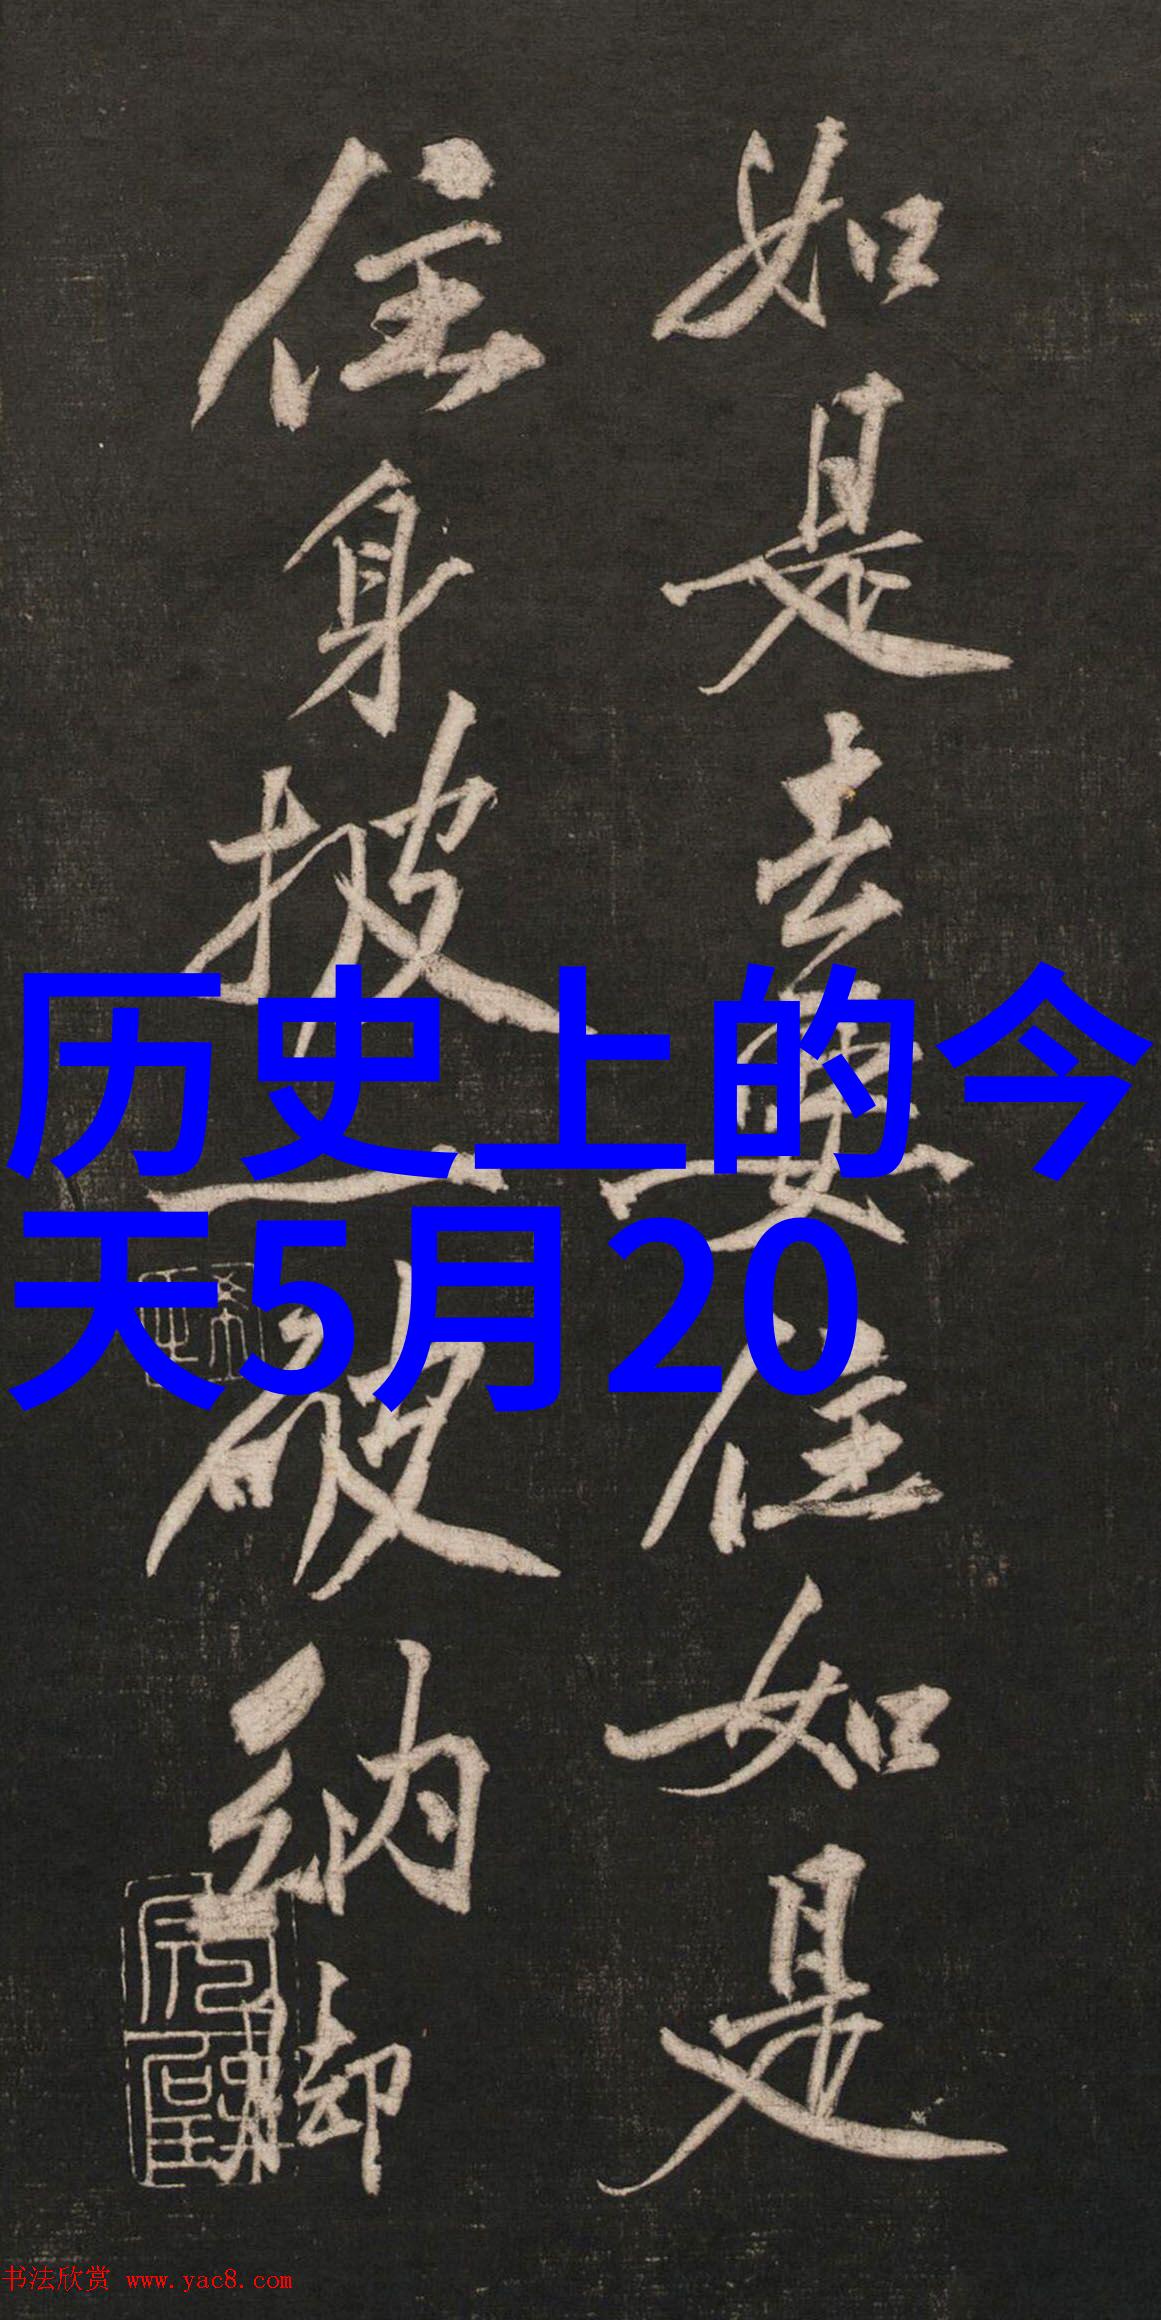 如是去要住如是
住身披一破衲脚
历史上的今
天5月20
书法欣赏 www.yac8.com